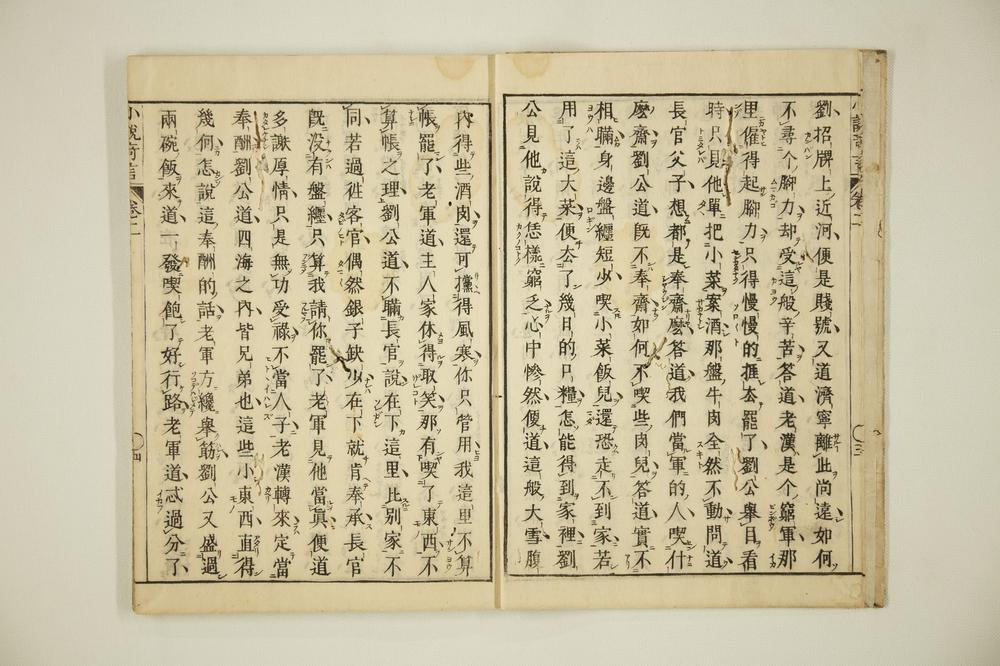 劉招牌上近河便是賤號又道濟寧離此尚遠如何
不尋个腳力却受這般辛苦答道老漢是个窮軍那
里僱得起腳力只得慢慢的捱去罷了劉公舉目看
時只見他單把小菜案酒那盤牛肉全然不動問道
長官父子想都是奉齋麽答道我們當軍的人喫什
麽齋劉公道既不奉齋如何不喫些肉兒答道實不
相瞞身邊盤纏短少喫小菜飯兒還恐走不到家若
用了這大菜便去了幾日的口糧怎能得到家裡劉
公見他說得恁樣窮乏心中慘然便道這般大雪腹
內得些酒肉還可攩得風寒你只管用我這里不算
帳罷了老軍道主人家休得取笑那有喫了東西不
算帳之理劉公道不瞞長官說在下這里比别家不
同若過徃客官偶然銀子缺少在下就肯奉承長官
既没有盤纏只算我請你罷了老軍見他當眞便道
多謝厚情只是無功受祿不當人子老漢轉來定當
奉酬劉公道四海之內皆兄弟也這些小東西直得
幾何怎說這奉酬的話老軍方纔舉筯劉公又盛過
兩碗飯來道一發喫飽了好行路老軍道忒過分了
小說奇言 卷二 四